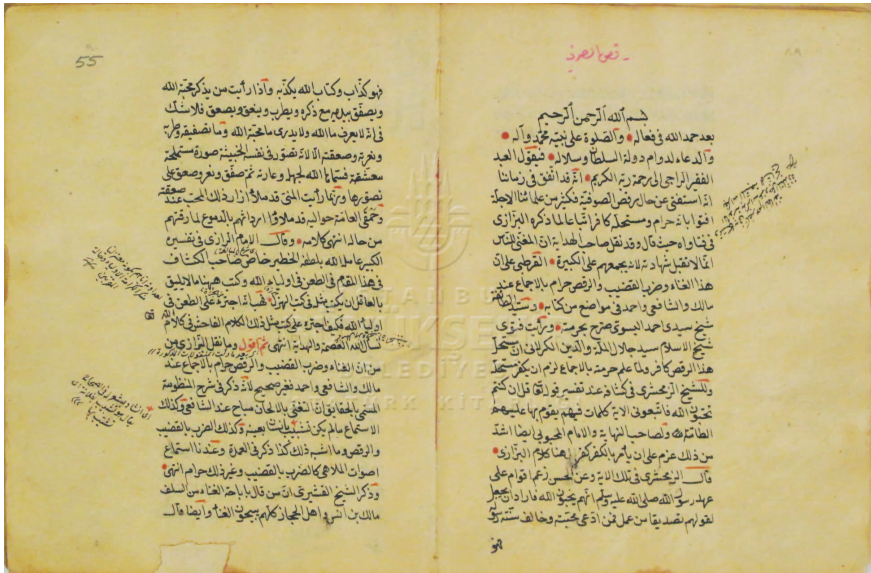 رقص الصوفي
بسم الله الرحمن الرحيم
بعد حمد الله في فعاله والصلوة على نبيه محمد وآله
والدعاء لدوام دولة السلطان وسلاله فيقول العبد
الفقير الراجي الى رحمة ربه الكريم انه قد اتفق في زماننا
انه استفتى عن حال رقص الصوفية فكثير من علمائنا الاجلة
افتوا بانه حرام ومستحله كافر اتباعا لما ذكره البزازى
في فتاواه حيث قال وقد نقل صاحب الهداية ان المغنى للناس
انما لا تقبل شهادته لانه يجمعهم على الكبيرة القرطبي على ان
هذا الغناء وضرب القضيب والرقص حرام بالاجماع عند
مالك والشافعي واحمد في مواضع من كتابه وسيد الطائفة
شيخ سيدى احمد اليسوى صرح بحرمته ورأيت فتوى
شيخ الاسلام سيد جلال الملة والدين الكرلانى ان مستحل
هذا الرقص كافر ولما علم حرمته بالاجماع لزم ان يكفر مستحله
وللشيخ الزمخشرى في كشافه عند تفسير قوله تعالى قل ان كنتم
تحبون الله فاتبعونى الآية كلمات فيهم يقوم بها عليهم
الطامة ولصاحب النهاية والامام المحبوبى ايضا اشد
من ذلك عزم على ان يأمر بالكفر هنا كلام البزازى
قال الزمخشرى في تلك الآية وعن الحسن زعم اقوام على
عهد رسول الله صلى الله عليه وسلم انهم يحبون الله فاراد ان يجعل
لقولهم تصديقا من عمل فمن ادعى محبته وخالف سنة رسوله
فهو
55
فهو كذاب وكتاب الله يكذبه واذا رأيت من يذكر محبة الله
ويصفق بيديه مع ذكره ويطرب وينعق ويصعق فلا شك
في انه لا يعرف ما الله ولا يدرى ما محبة الله وما تصفيقه وطربه
ونعرته وصعقته الا لانه تصور في نفسه الخبيثة صورة مستملحة
معشقة فسماها الله لجهله وعارته ثم صفق ونعر وصعق على
تصورها وربما رأيت المنى قد ملأ ازار ذلك المحب عند صعقته
وحمقى العامة حواليه قد ملأوا اردانهم بالدموع لما رققهم
من حاله انتهى كلامه وقال الامام الرازى في تفسيره
الكبير عامله الله بلطفه الخطير خاض صاحب الكشاف
في هذا المقام في الطعن في اولياء الله وكتب ههنا ما لا يليق
بالعاقل ان يكتب مثله في كتب الهزل فهب انه اجترء على الطعن في
اولياء الله فكيف اجترء على كتب مثل ذلك الكلام الفاحش في كلام الله
نسأل الله العصمة والهداية انتهى ثم اقول وما نقل البزازى
من ان الغناء وضرب القضيب والرقص حرام بالاجماع عند
مالك والشافعي واحمد فغير صحيح لانه ذكر في شرح المنظومة
المسمى بالحقايق ان التغنى بالالحان مباح عند الشافعي وكذلك
الاستماع ما لم يكن تشبيبا بامرأة بعينها وكذلك الضرب بالقضيب
والرقص وما اشبه ذلك كذا ذكر في العمدة وعندنا استماع
اصوات الملاهى كالضرب بالقضيب وغير ذلك حرام انتهى
وذكر الشيخ القشيرى ان من قال باباحة الغناء من السلف
مالك بن انس واهل الحجاز كلهم يبيحون الغناء وايضا قال